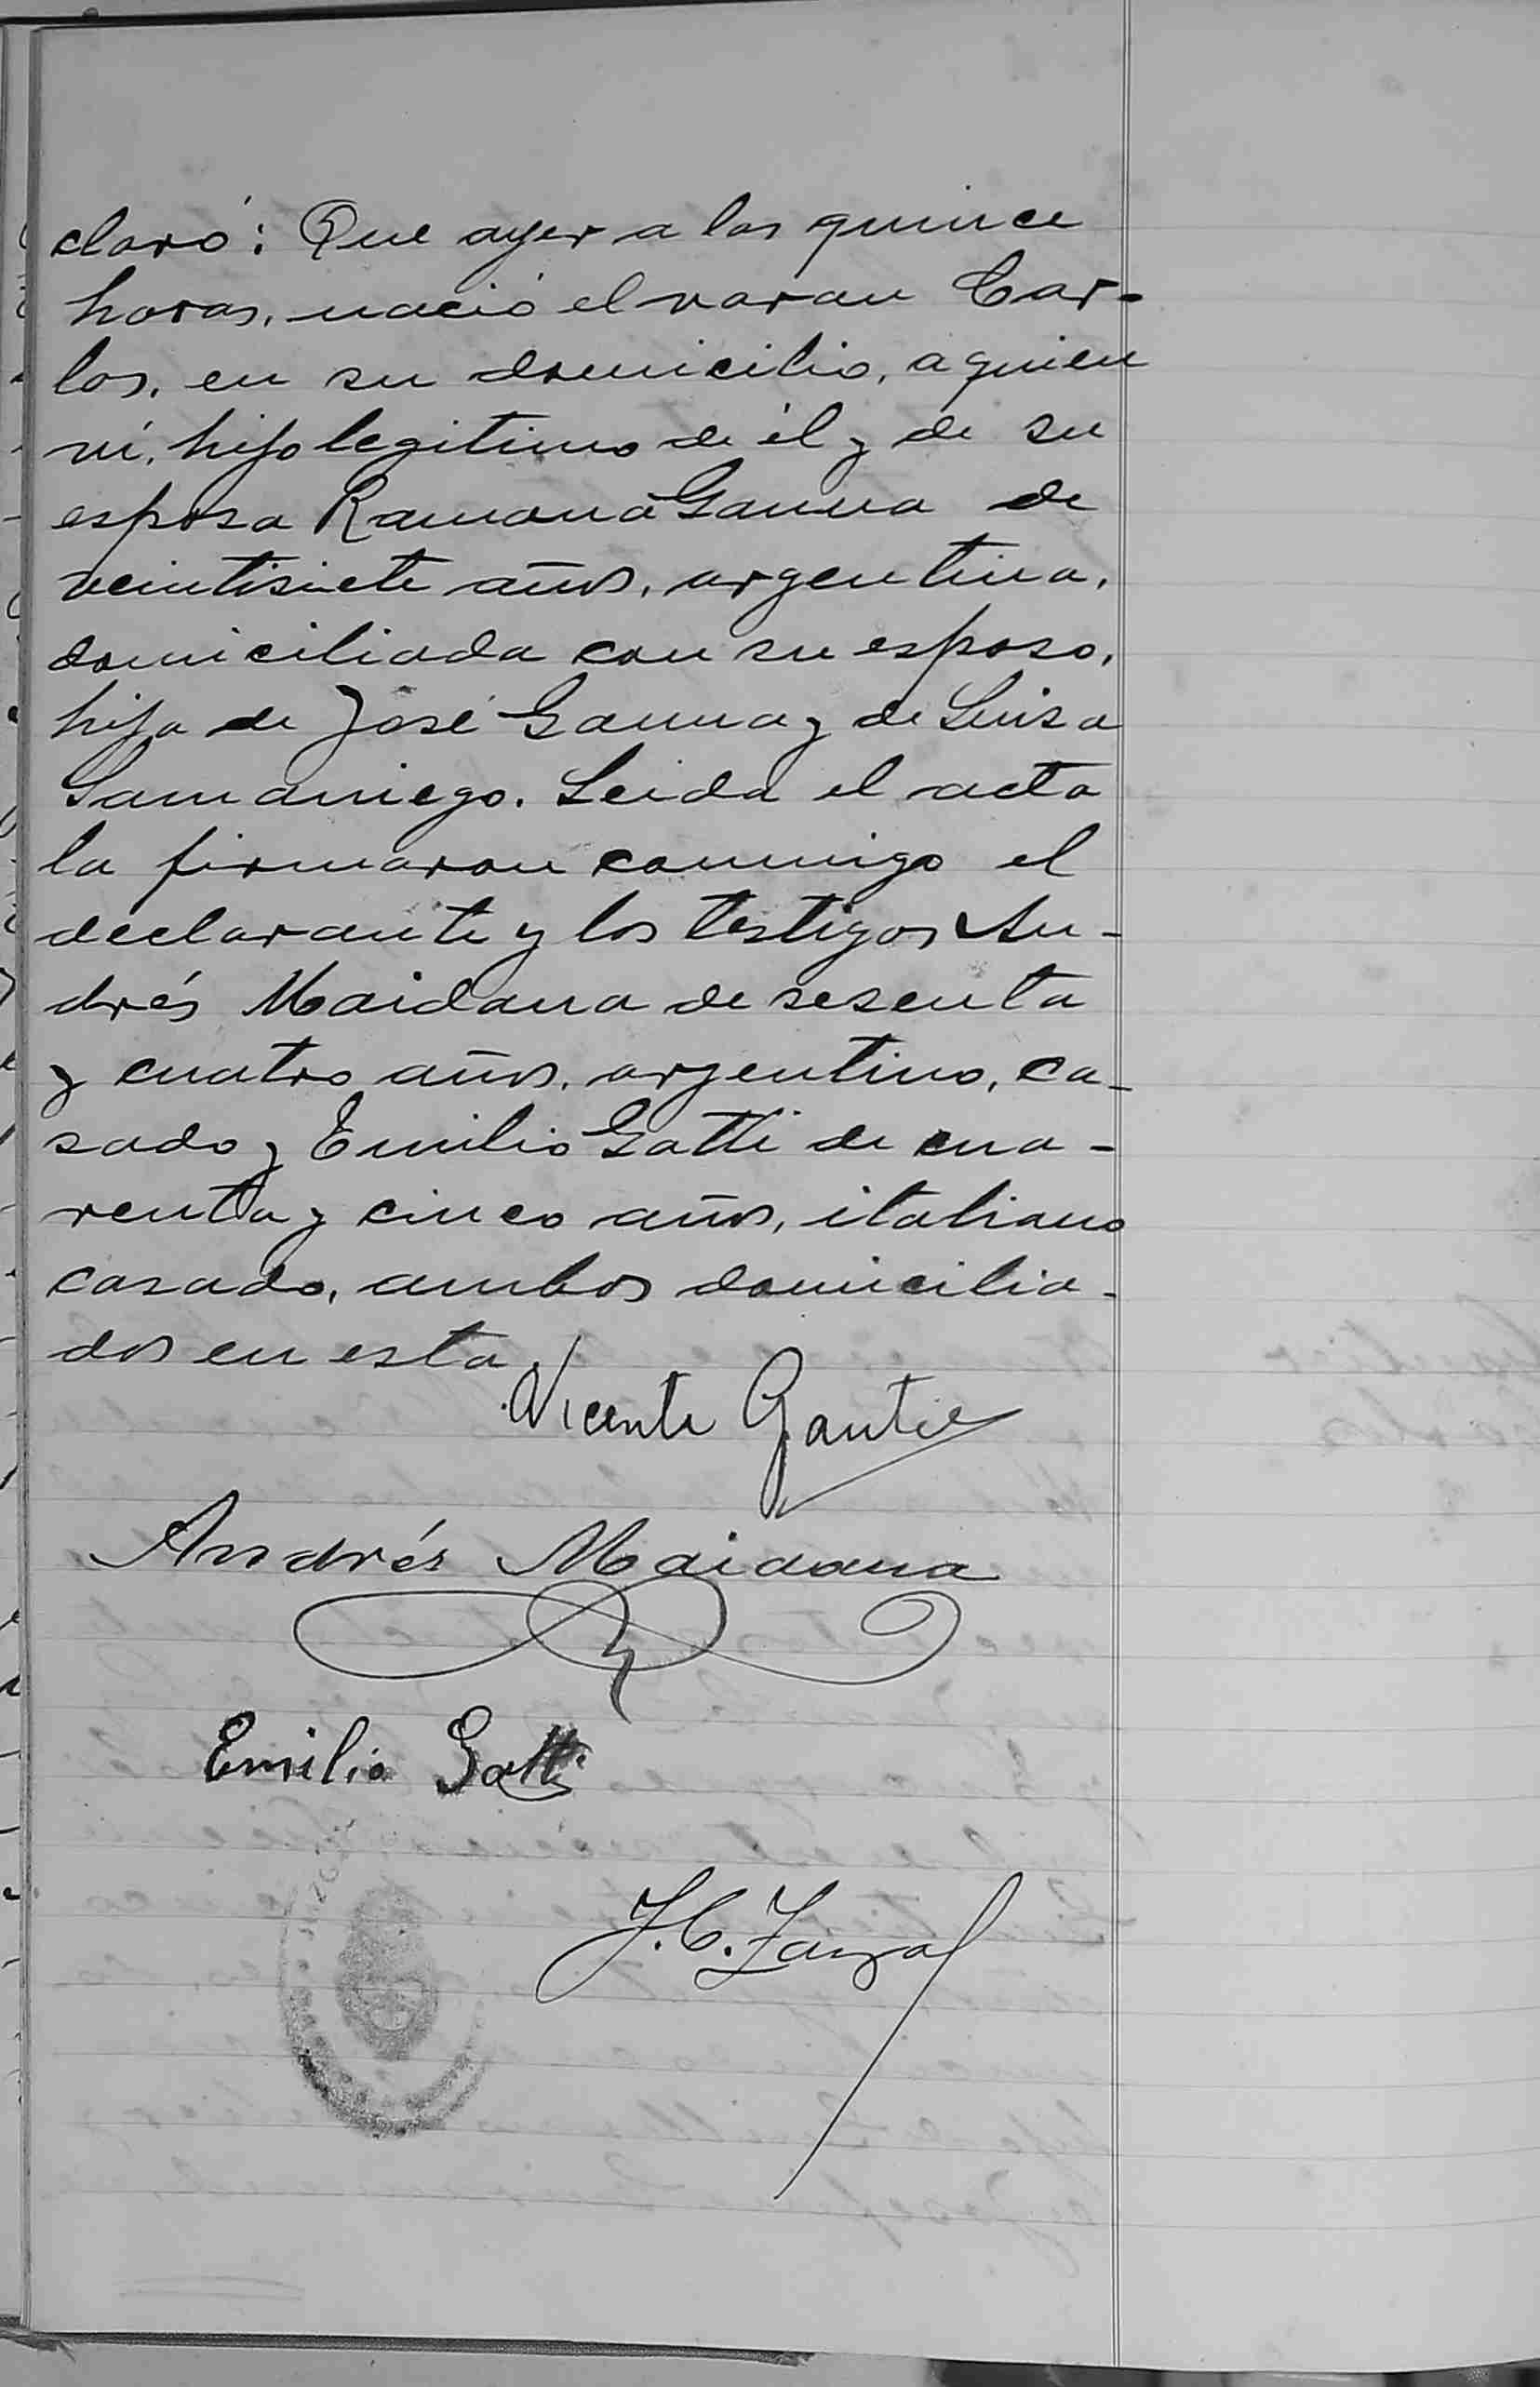 claró: Que ayer a las quince
horas, nació el varon Car-
los, en su domicilio, a quien
vi, hijo legitimo de él y de su
esposa Ramona Gauna de
veintisiete años, argentina,
domiciliada con su esposo,
hija de José Gauna y de Luisa
Samaniego. Leida el acta
la firmaron conmigo el
declarante y los testigos An-
drés Maidana de sesenta
y cuatro años, argentino, ca-
sado y Emilio Gatti de cua-
renta y cinco años, italiano
casado, ambos domicilia-
dos en esta
Vicente Gautie
Andrés Maidana
Emilio Gatti